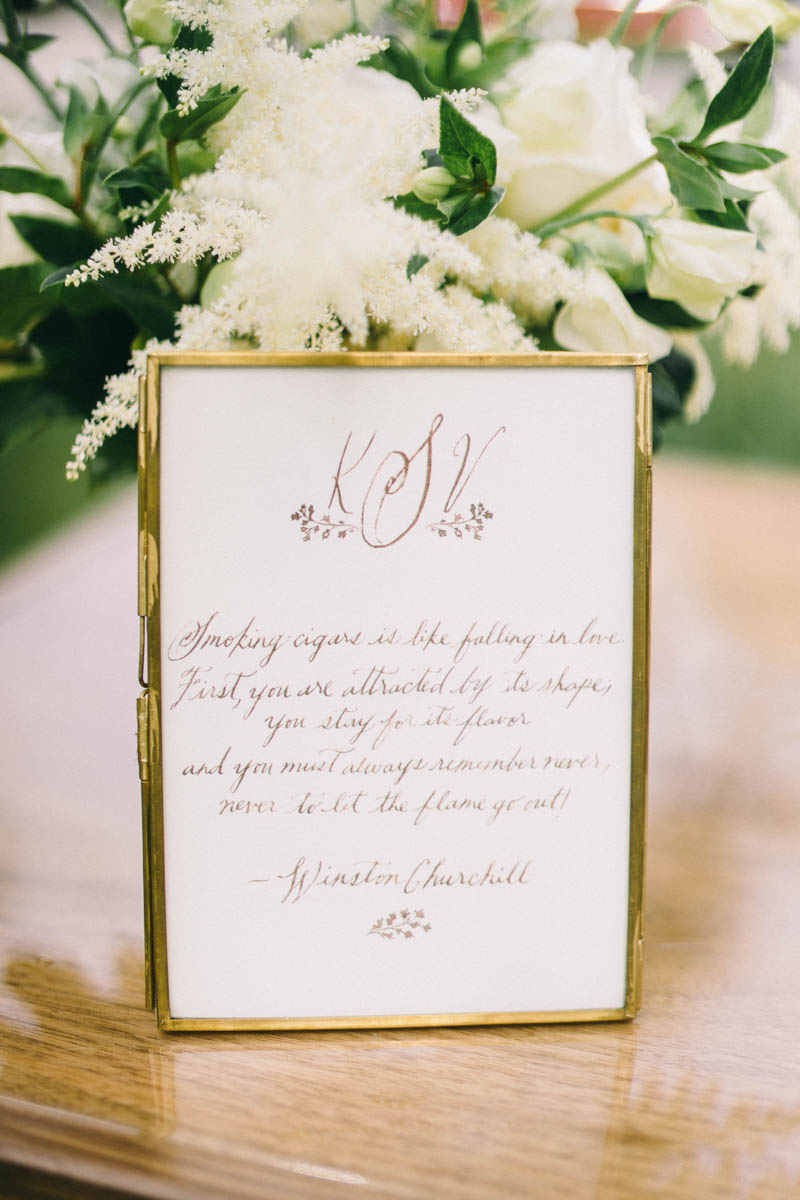 K S V
Smoking cigars is like falling in love.
First, you are attracted by its shape;
you stay for its flavor
and you must always remember never,
never to let the flame go out!
– Winston Churchill